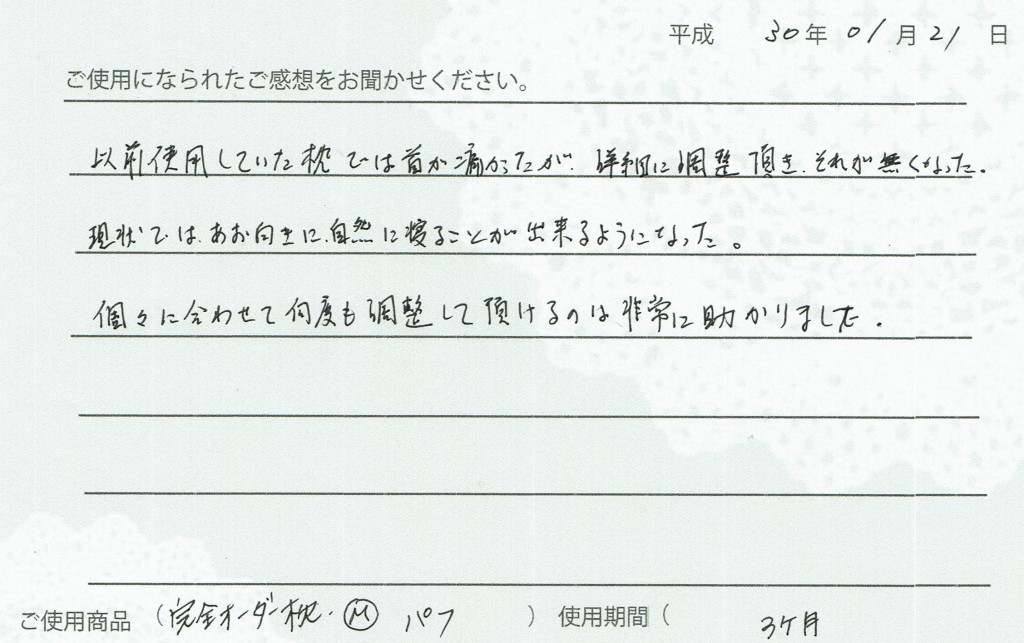 平成 30年 01月 21日
ご使用になられたご感想をお聞かせください。
以前使用していた枕では首が痛かったが、詳細に調整頂き、それが無くなった。
現状では、あお向きに、自然に寝ることが出来るようになった。
個々に合わせて何度も調整して頂けるのは非常に助かりました。
ご使用商品 (完全オーダー枕・Ⓜ パフ ) 使用期間 ( 3ヶ月